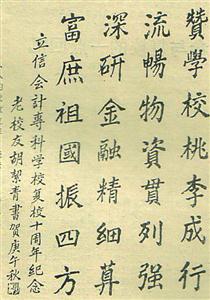 讚學校桃李成行
流暢物資貫列强
深研金融精細算
富庶祖國振四方
立信会計專科学校复校十周年纪念
老校友胡絜青書賀庚午秋